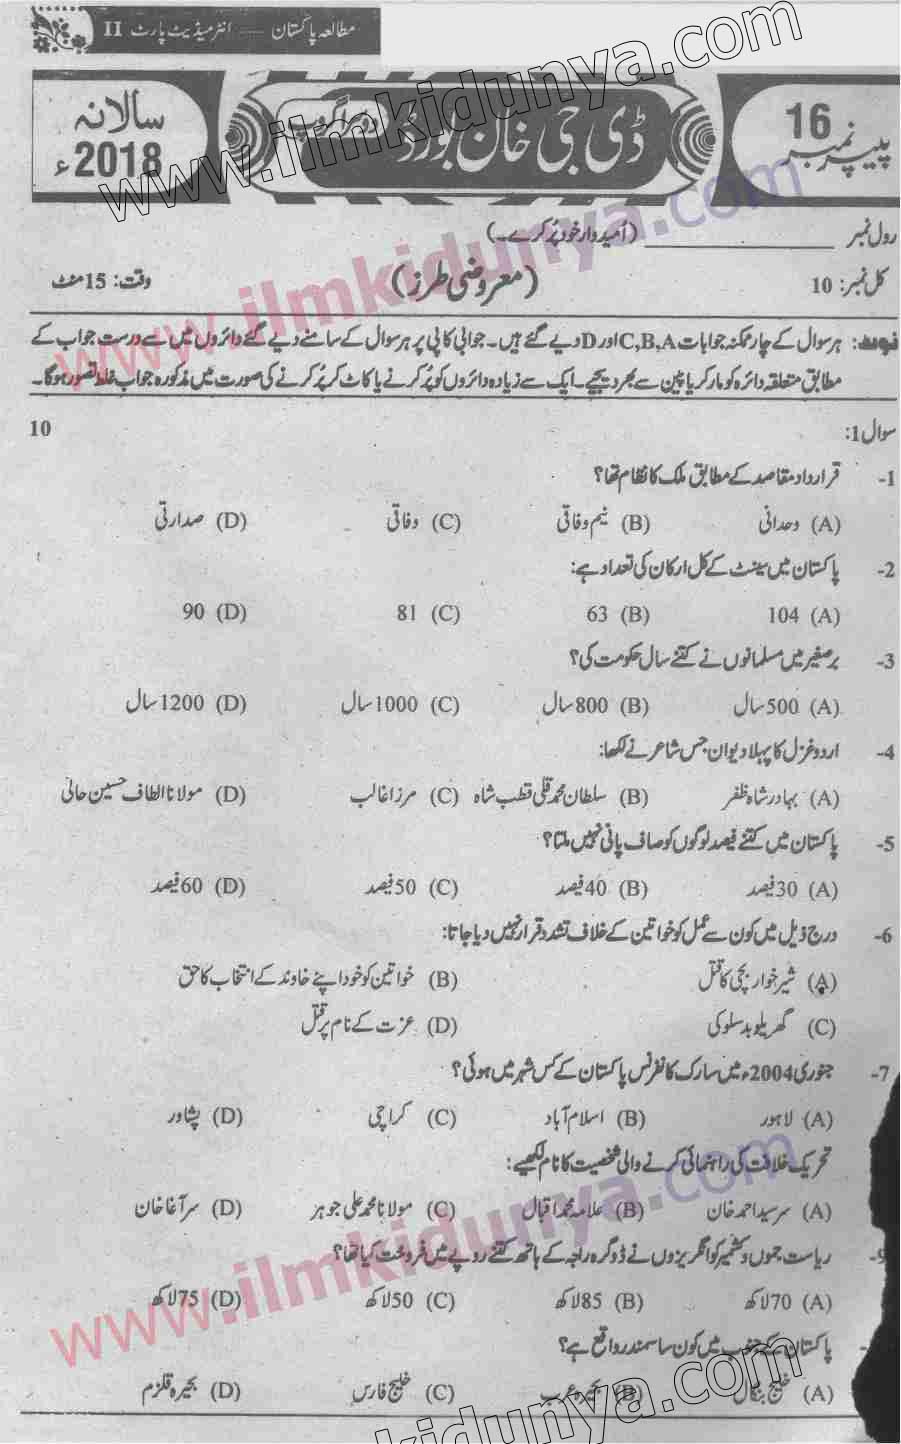 مطالعہ پاکستان — انٹرمیڈیٹ پارٹ II
www.ilmkidunya.com
پیپر نمبر 16
ڈی جی خان بورڈ
دوسرا گروپ
سالانہ 2018ء
رول نمبر __________ (اُمیدوار خود پُر کرے۔)
کل نمبر: 10 (معروضی طرز) وقت: 15 منٹ
نوٹ: ہر سوال کے چار ممکنہ جوابات C,B,A اور D دیے گئے ہیں۔ جوابی کاپی پر ہر سوال کے سامنے دیے گئے دائروں میں سے درست جواب کے
مطابق متعلقہ دائرہ کو مارکر یا پین سے بھر دیجیے۔ ایک سے زیادہ دائروں کو پُر کرنے یا کاٹ کر پُر کرنے کی صورت میں مذکورہ جواب غلط تصور ہوگا۔
سوال 1: 10
1- قرارداد مقاصد کے مطابق ملک کا نظام تھا؟
(A) وحدانی (B) نیم وفاقی (C) وفاقی (D) صدارتی
2- پاکستان میں سینٹ کے کل ارکان کی تعداد ہے:
(A) 104 (B) 63 (C) 81 (D) 90
3- برصغیر میں مسلمانوں نے کتنے سال حکومت کی؟
(A) 500 سال (B) 800 سال (C) 1000 سال (D) 1200 سال
4- اردو غزل کا پہلا دیوان جس شاعر نے لکھا:
(A) بہادر شاہ ظفر (B) سلطان محمد قلی قطب شاہ (C) مرزا غالب (D) مولانا الطاف حسین حالی
5- پاکستان میں کتنے فیصد لوگوں کو صاف پانی نہیں ملتا؟
(A) 30 فیصد (B) 40 فیصد (C) 50 فیصد (D) 60 فیصد
6- درج ذیل میں کون سے عمل کو خواتین کے خلاف تشدد قرار نہیں دیا جاتا:
(A) شیر خوار بچی کا قتل (B) خواتین کو خود اپنے خاوند کے انتخاب کا حق
(C) گھریلو بدسلوکی (D) عزت کے نام پر قتل
7- جنوری 2004ء میں سارک کانفرنس پاکستان کے کس شہر میں ہوئی؟
(A) لاہور (B) اسلام آباد (C) کراچی (D) پشاور
تحریک خلافت کی راہنمائی کرنے والی شخصیت کا نام لکھیے:
(A) سرسید احمد خان (B) علامہ محمد اقبال (C) مولانا محمد علی جوہر (D) سر آغا خان
9- ریاست جموں و کشمیر کو انگریزوں نے ڈوگرہ راجہ کے ہاتھ کتنے روپے میں فروخت کیا تھا؟
(A) 70 لاکھ (B) 85 لاکھ (C) 50 لاکھ (D) 75 لاکھ
- پاکستان کے جنوب میں کون سا سمندر واقع ہے؟
(A) خلیج بنگال (B) بحیرہ عرب (C) خلیج فارس (D) بحیرہ قلزم